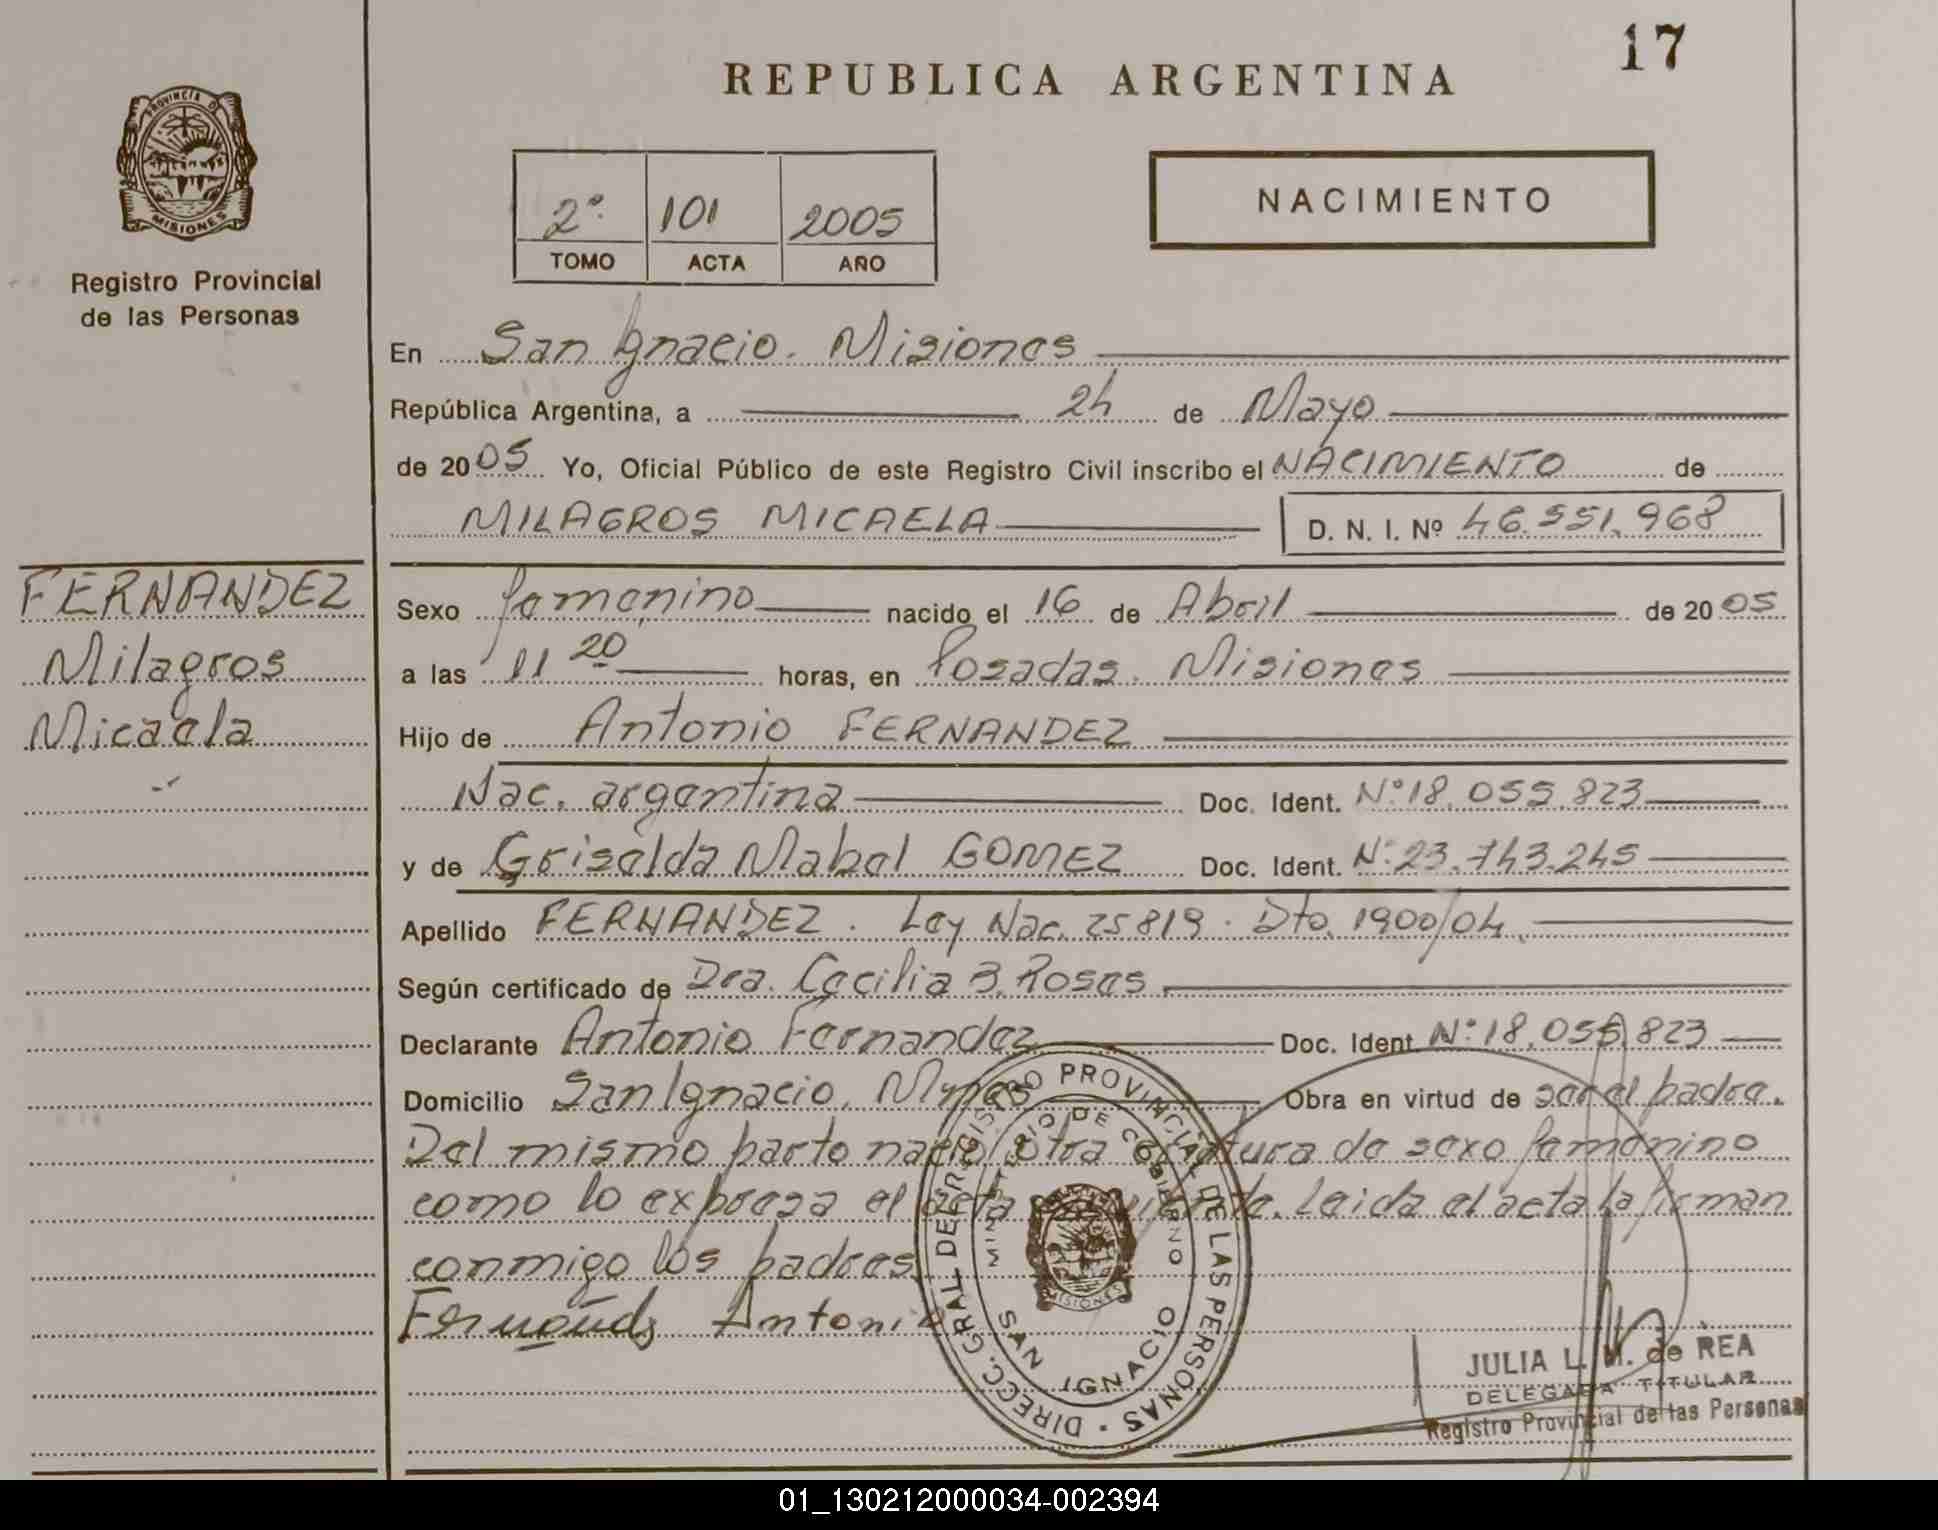 17
REPUBLICA ARGENTINA
PROVINCIA DE
MISIONES
Registro Provincial
de las Personas
2º 101 2005
TOMO ACTA AÑO
NACIMIENTO
En San Ignacio. Misiones
República Argentina, a 24 de Mayo
de 2005 Yo, Oficial Público de este Registro Civil inscribo el NACIMIENTO de
MILAGROS MICAELA D. N. I. Nº 46.551.968
FERNANDEZ
Milagros
Micaela
Sexo femenino nacido el 16 de Abril de 2005
a las 11 20 horas, en Posadas. Misiones
Hijo de Antonio FERNANDEZ
Nac. argentina Doc. Ident. Nº18.055.823
y de Griselda Mabel GOMEZ Doc. Ident. Nº23.743.245
Apellido FERNANDEZ. Ley Nac. 25819. Dto. 1900/04.
Según certificado de Dra. Cecilia B. Rosas.
Declarante Antonio Fernandez Doc. Ident Nº18.055.823
Domicilio San Ignacio, Mnes Obra en virtud de ser el padre.
Del mismo parto nació otra criatura de sexo femenino
como lo expresa el acta siguiente. Leida el acta la firman
conmigo los padres
Antonio
DIRECC. GRAL DEL REGISTRO PROVINCIAL DE LAS PERSONAS
MINISTERIO DE GOBIERNO
MISIONES
SAN IGNACIO
JULIA L. M. de REA
DELEGADA TITULAR
Registro Provincial de las Personas
01_130212000034-002394